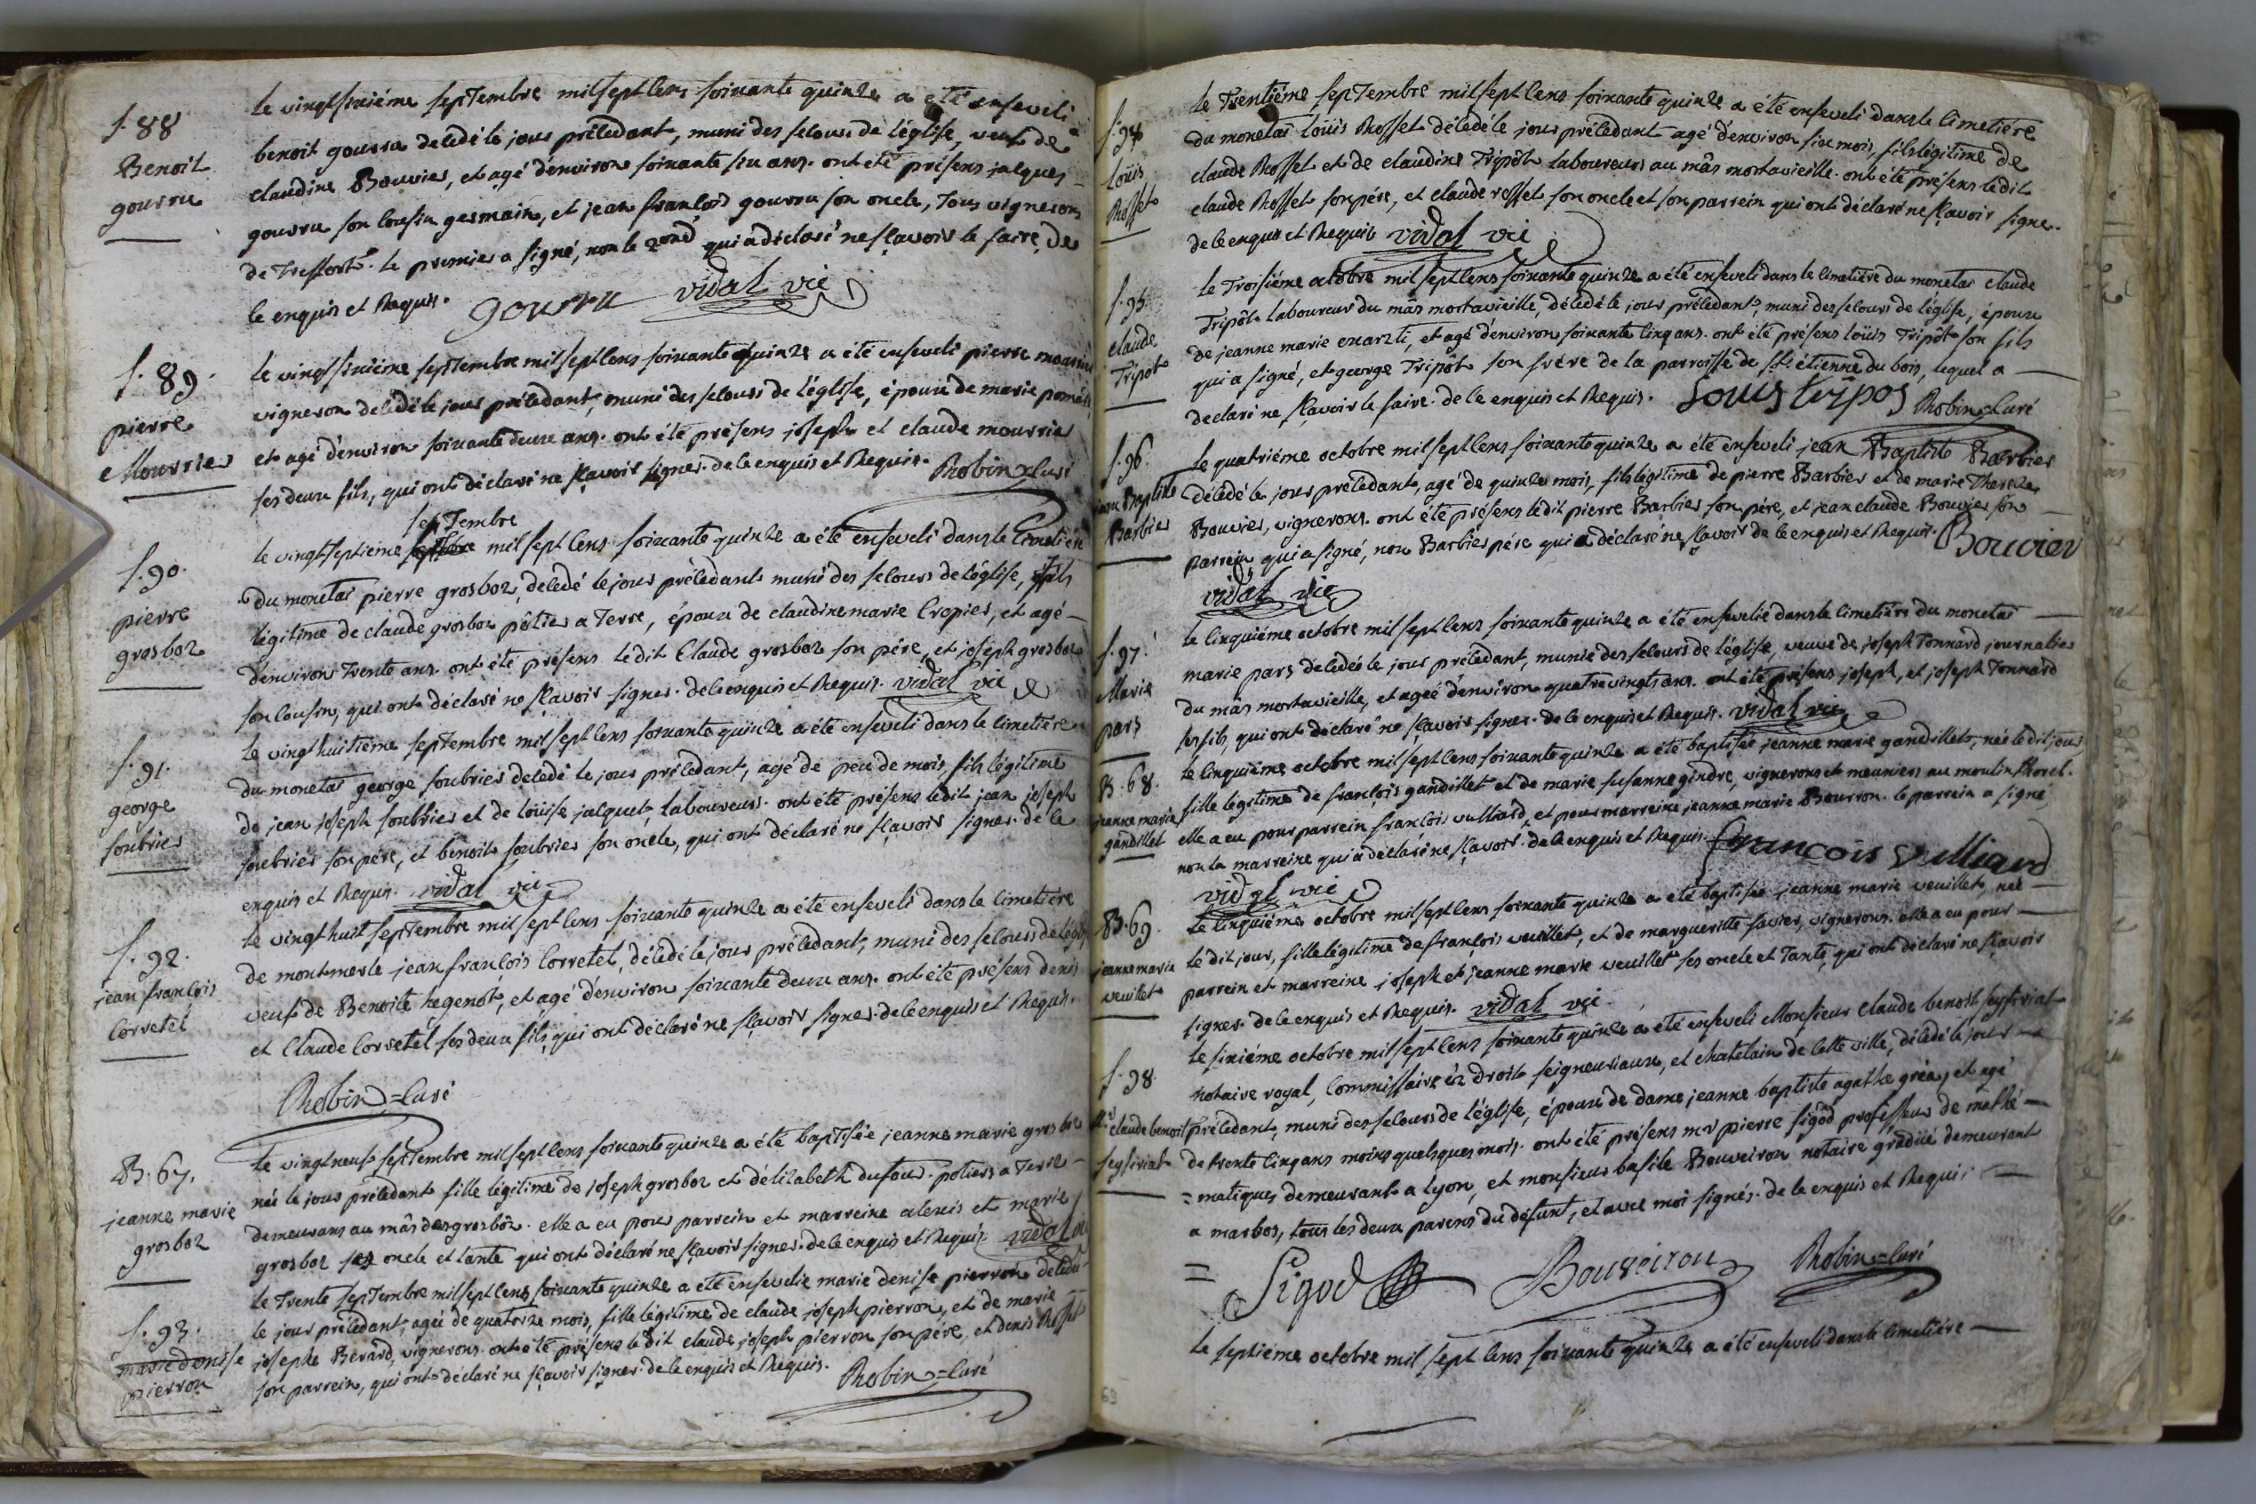 S. 88
Benoit
gourru
le vingtsixiéme septembre mil sept cens soixante quinze a été enseveli
benoit gourru decedé le jour précedant, muni des secours de l'église, veuf de
claudine Bouvier, et agé d'environ soixante six ans. ont été présens jacques
gourru son cousin germain, et jean francois gourru son oncle, tous vignerons
de Treffort. le premier a signé, non le 2ond qui a déclaré ne sçavoir le faire, de
ce enquis et Requis. gourru vidal vic
S. 89.
pierre
Mourrier
le vingtsixiéme septembre mil sept cens soixante quinze a été enseveli pierre
vigneron decedé le jour précedant, muni des secours de l'église, époux de marie
et agé d'environ soixante deux ans. ont été présens joseph et claude mourrier
ses deux fils, qui ont déclaré ne sçavoir signer. de ce enquis et Requis. Robin=Curé
septembre
S. 90.
pierre
grosboz
le vingtseptiéme mil sept cens soixante quinze a été enseveli dans le Cimetiére
du monetai pierre grosboz, decedé le jour précedant muni des secours de l'église, fils
légitime de claude grosboz pôtier a Terre, époux de claudine marie Cropier, et agé
d'environ trente ans. ont été présens ledit Claude grosboz son pére, et joseph grosboz
son cousin, qui ont déclaré ne sçavoir signer. de ce enquis et Requis. vidal vic
S. 91.
george
soubrier
le vingthuitiéme septembre mil sept cens soixante quinze a été enseveli dans le cimetiére
du monetai george soubrier decedé le jour précedant, agé de peu de mois, fils légitime
de jean joseph soubrier et de Loüise jacquet, laboureurs. ont été présens ledit jean joseph
soubrier son pére, et benoit soubrier son oncle, qui ont déclaré ne sçavoir signer. de ce
enquis et Requis. vidal vic
S. 92.
jean francois
Corvetet
le vingt huit septembre mil sept cens soixante quinze a été enseveli dans le cimetiére
de montmerle jean francois Corvetet, décédé le jour précedant, muni des secours de l'église
veuf de Benoite hegenot, et agé d'environ soixante deux ans. ont été présens denis
et Claude Corvetet ses deux fils qui ont déclaré ne sçavoir signer. de ce enquis et Requis.
Robin=Curé
B. 67.
jeanne marie
grosboz
le vingtneuf septembre mil sept cens soixante quinze a été baptisée jeanne marie grosboz
née le jour précedant fille légitime de joseph grosboz et d'élizabeth dufour. potiers a Terre
demeurans au mâs des grosboz. elle a eu pour parrein et marreine alexis et marie
grosboz ses oncle et tante qui ont déclaré ne sçavoir signer. de ce enquis et Requis. vidal vic
S. 93.
marie denise
pierron
le Trente septembre mil sept cens soixante quinze a été ensevelie marie denise pierron decedée
le jour précedant, agée de quatorze mois, fille légitime de claude joseph pierron, et de marie
josephe Berard, vignerons. ont été présens ledit claude joseph pierron son pére, et denis Rosset
son parrein, qui ont déclaré ne sçavoir signer. de ce enquis et Requis. Robin=Curé
S. 94
Loüis
Rosset
le Trentiéme septembre mil sept cens soixante quinze a été enseveli dans le Cimetiére
du monetai Loüis Rosset décedé le jour précedant agé d'environ six mois, fils légitime de
claude Rosset et de claudine Tripôt laboureurs au mâs mortavieille. ont été présens ledit
claude Rosset son pére, et claude rosset son oncle et son parrein qui ont déclaré ne sçavoir signer.
de ce enquis et Requis vidal vic
S. 95.
claude
Tripôt
le Troisiéme octobre mil sept cens soixante quinze a été enseveli dans le cimetiére du monetai claude
Tripôt laboureur du mâs mortavieille, décedé le jour précedant, muni des secours de l'église, époux
de jeanne marie, et agé d'environ soixante cinq ans. ont été présens loüis Tripôt son fils
qui a signé, et george Tripôt son frére de la parroisse de st. étienne du bois, lequel a
declaré ne sçavoir le faire. de ce enquis et Requis. Louis tripos Robin=Curé
S. 96.
jean Baptiste
Barbier
le quatriéme octobre mil sept cens soixante quinze a été enseveli jean Baptiste Barbier
décedé le jour précedant, agé de quinze mois, fils légitime de pierre Barbier et de marie Therese
Bouvier, vignerons. ont été présens ledit pierre Barbier son pére, et jean claude Bouvier son
parrein qui a signé, non Barbier pére qui a déclaré ne sçavoir de ce enquis et Requis. Bouvier
vidal vic
S. 97.
Marie
pars
le Cinquiéme octobre mil sept cens soixante quinze a été ensevelie dans le cimetiére du monetai
marie pars decedée le jour précedant, munie des secours de l'église, veuve de joseph Tonnard journalier
du mâs mortavieille, et agée d'environ quatrevingts ans. ont été présens joseph, et joseph Tonnard
ses fils, qui ont déclaré ne sçavoir signer. de ce enquis et Requis. vidal vic
B. 68.
jeanne marie
gandillet
le Cinquiéme octobre mil sept cens soixante quinze a été baptisée jeanne marie gandillet, née ledit jour,
fille légitime de françois gandillet et de marie susanne gindre, vignerons et meuniers au moulin Thorel.
elle a eu pour parrein francois vulliard, et pour marreine jeanne marie Bourron. le parrein a signé
non la marreine qui a déclaré ne sçavoir. de ce enquis et Requis. francois vulliard
vidal vic
B. 69.
jeanne marie
veuillet
le Cinquiéme octobre mil sept cens soixante quinze a été baptisée jeanne marie veuillet, née
le dit jour, fille légitime de françois veuillet, et de margueritte favier, vignerons. elle a eu pour
parrein et marreine joseph et jeanne marie veuillet ses oncle et Tante, qui ont déclaré ne sçavoir
signer. de ce enquis et Requis. vidal vic
S. 98.
Mr. claude benoit
feysiviat
le sixiéme octobre mil sept cens soixante quinze a été enseveli Monsieur Claude benoit feysiviat
notaire royal, Commissaire éz droits seigneuriaux, et chatelain de cette ville, décedé le jour
précedant, muni des secours de l'église, époux de dame jeanne baptiste agathe gréa, et agé
de trente cinq ans moins quelques mois. ont été présens mr pierre sigod professeur de mathé
=matiques demeurant a Lyon, et monsieur basile Bouveiron notaire gradué demeurant
a marboz, tous les deux parens du défunt, et avec moi signés. de ce enquis et Requis
= Sigod Bouveiron Robin=Curé
le septiéme octobre mil sept cens soixante quinze a été enseveli dans le cimetiére
63